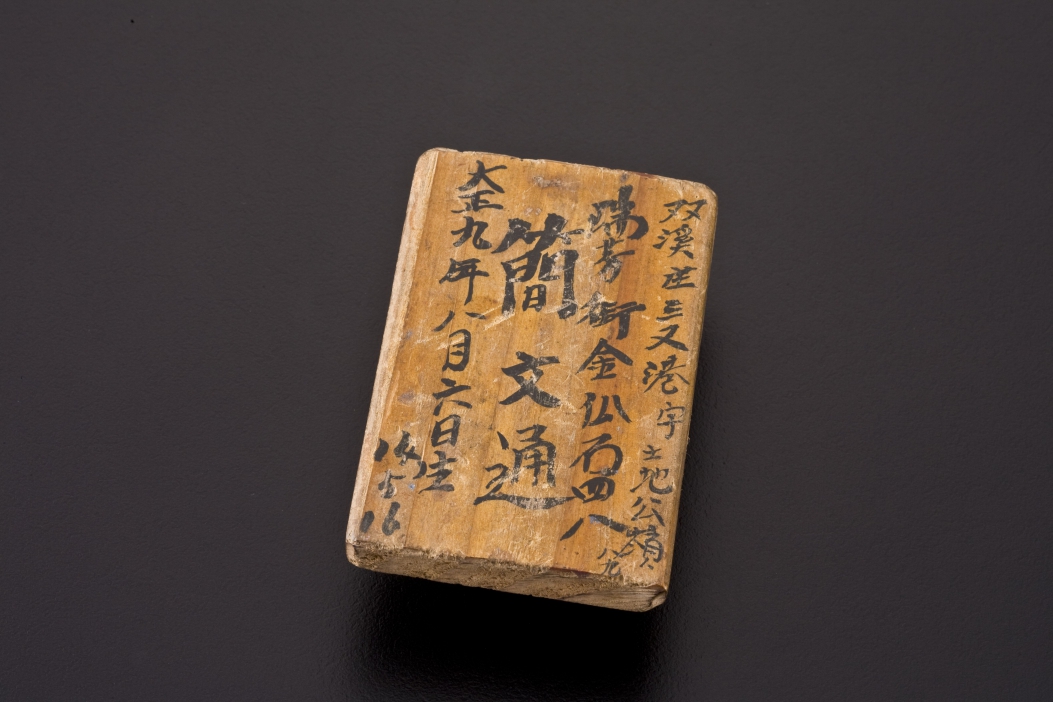 双溪庄三叉港字土地公嶺
瑞芳街金仙石四八
八九
簡文通
大正九年八月六日生